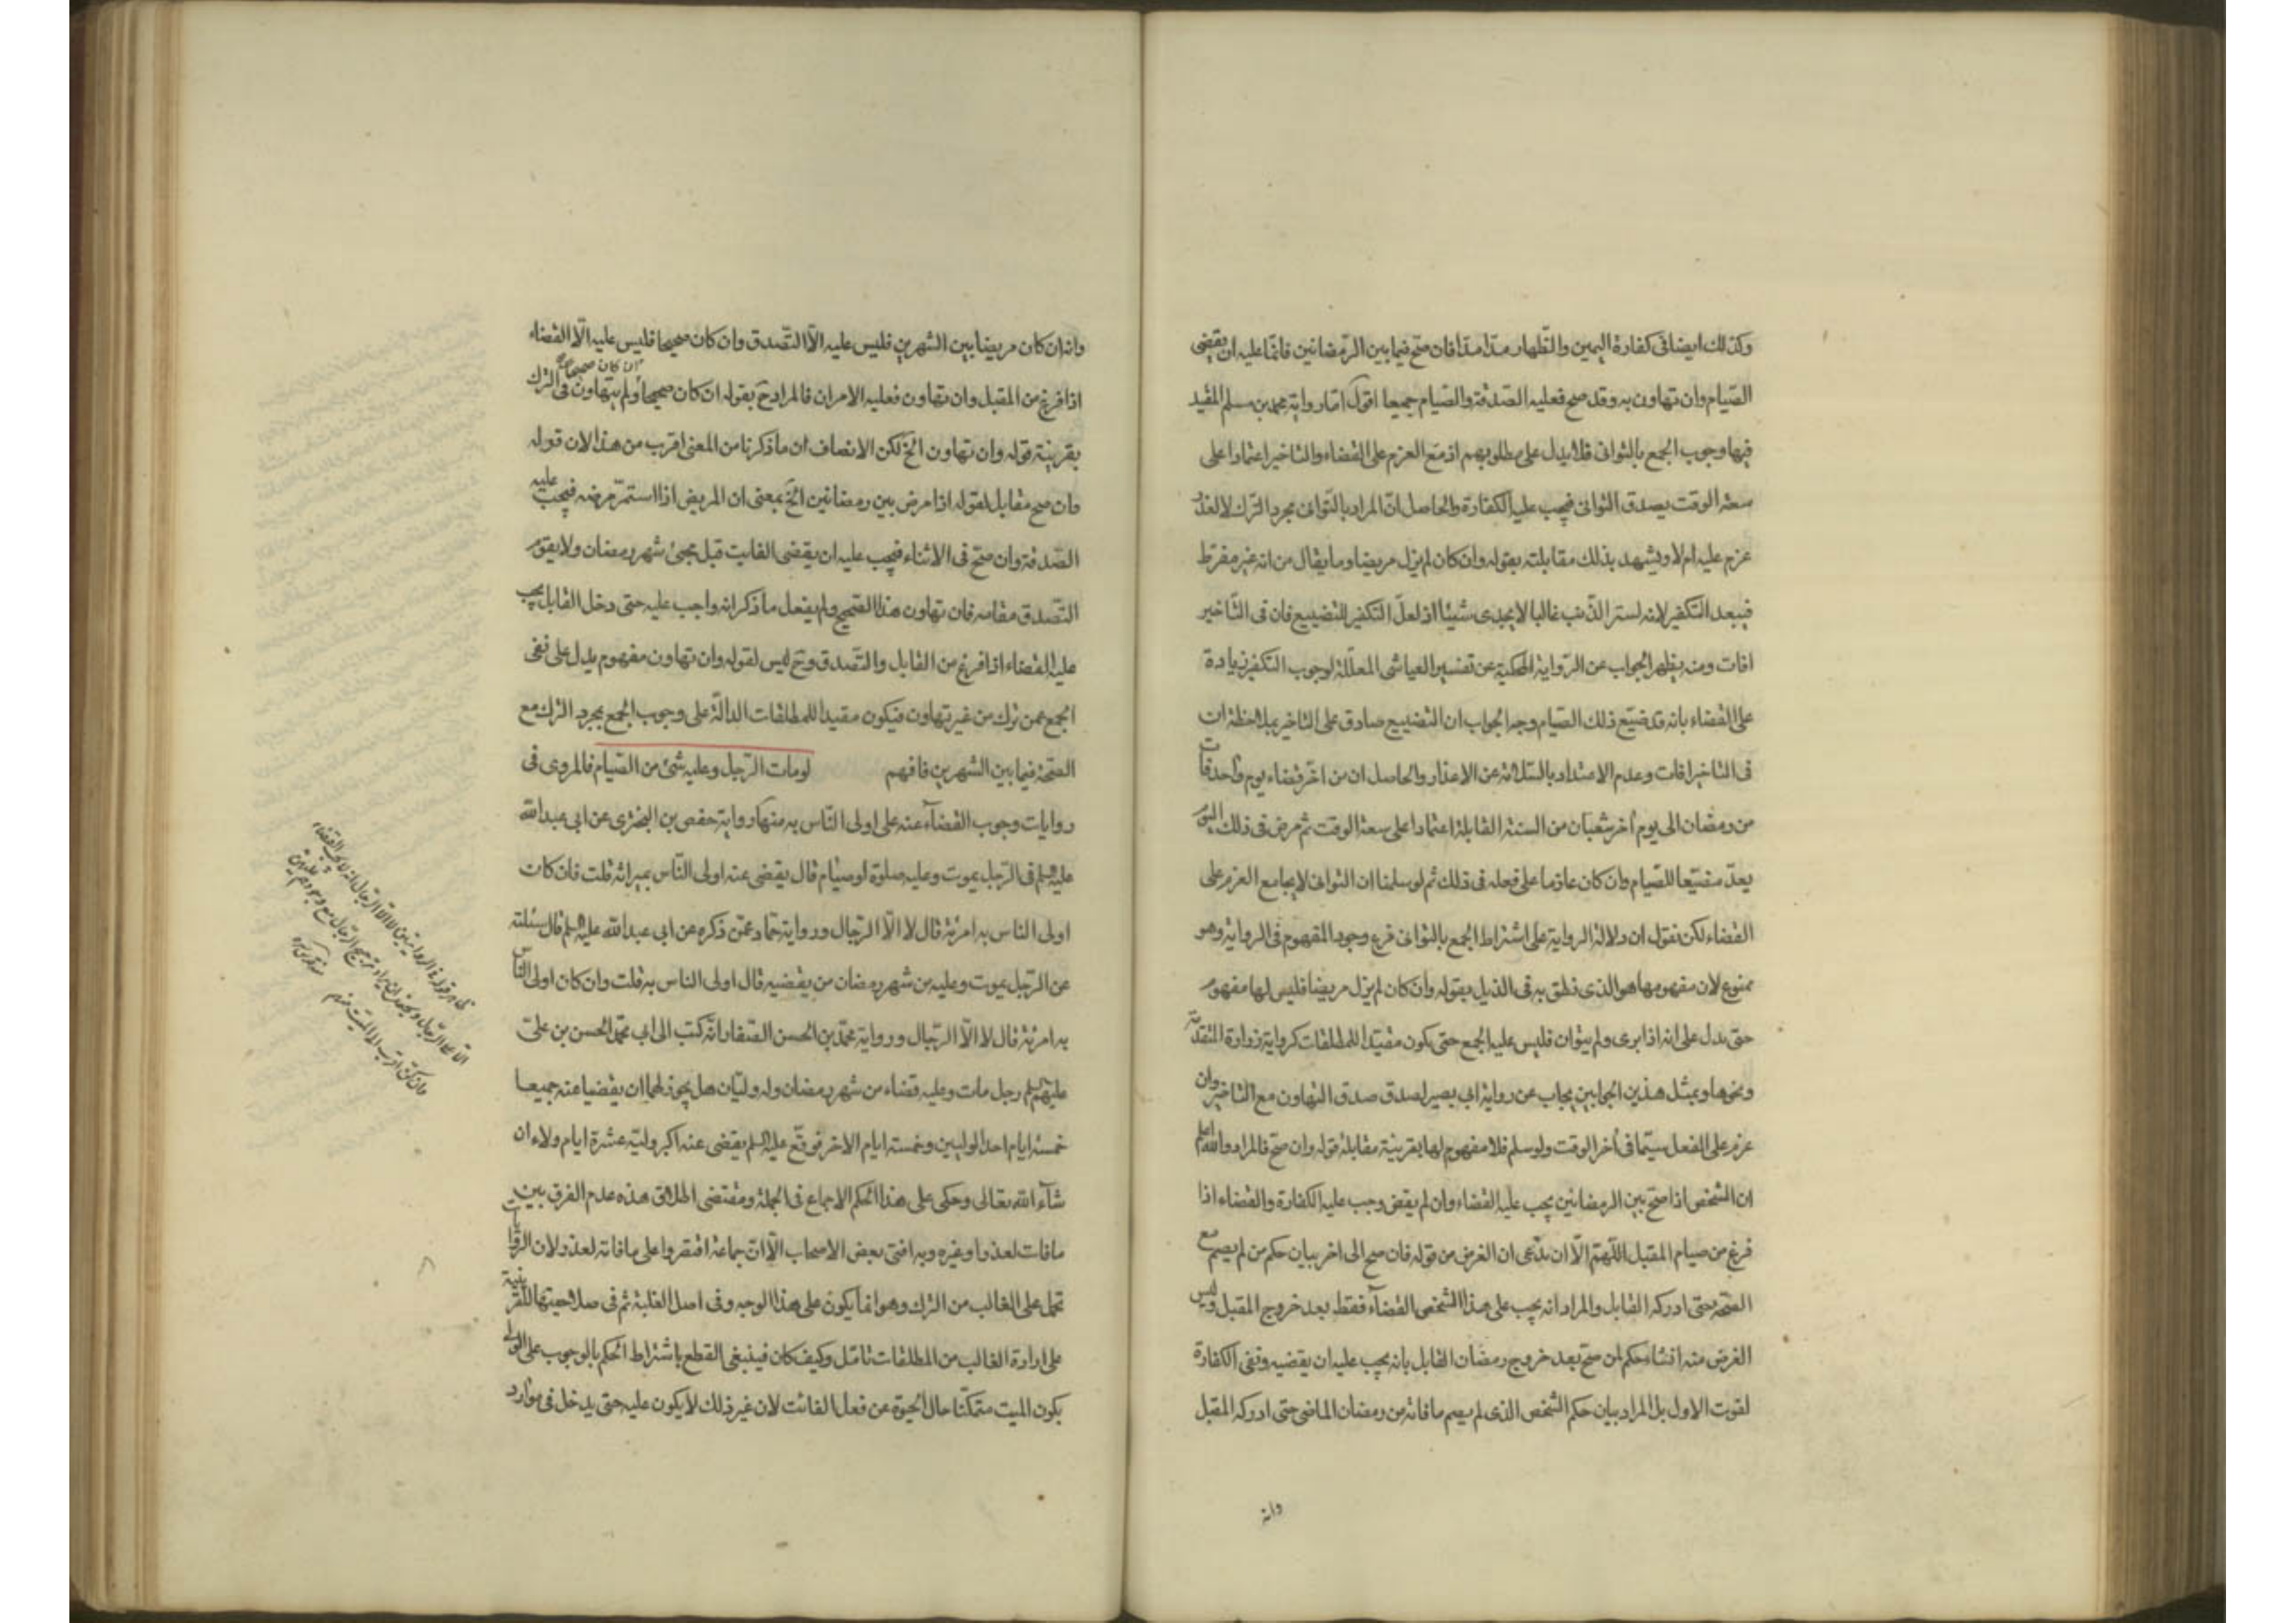 وكذلك ايضا فى كفارة اليمين والظهار مدّا مدّا فان صح فيما بين الرمضانين فانما عليه ان يقضى
الصيام وان تهاون به وقد صح فعليه الصدقة والصيام جميعا اقول امّا رواية محمد بن مسلم المقيد
فيها وجوب الجمع بالتوانى فلا يدل على مطلوبهم اذ مع العزم على القضاء والتاخير اعتمادا على
سعة الوقت يصدق التوانى فيجب عليه الكفارة والحاصل انّ المراد بالتوانى مجرد الترك لا لعذر
عزم عليه ام لا ويشهد بذلك مقابلته بقوله وان كان لم يزل مريضا وما يقال من انه غير مفرط
فيبعد التكفير لانه لستر الذنب غالبا لا يجدى شيئا اذ لعلّ التكفير للتضييع فان فى التاخير
افات ومنه يظهر الجواب عن الرواية المحكية عن تفسير العياشى المعلّلة لوجوب التكفير زيادة
على القضاء بانه قد ضيّع ذلك الصيام وجه الجواب ان التضييع صادق على التاخير بملاحظة ان
فى التاخير افات وعدم الاعتداد بالسلامة عن الاعذار والحاصل ان من اخّر قضاء يوم واحد فات
من رمضان الى يوم آخر شعبان من السنة القابلة اعتمادا على سعة الوقت ثم مرض فى ذلك اليوم
يعدّ مضيّعا للصيام وان كان عازما على فعله فى ذلك ثم لو سلمنا ان التوانى لا يجامع العزم على
القضاء لكن نقول ان دلالة الرواية على اشتراط الجمع بالتوانى فرع وجود المفهوم فى الرواية وهو
ممنوع لان مفهومها هو الذى نطق به فى الذيل بقوله وان كان لم يزل مريضا فليس لها مفهوم
حتى يدل على انه اذا برى ولم يتوان فليس عليه الجمع حتى يكون مقيّدا للمطلقات كرواية زرارة المتقدمة
ونحوها وبمثل هذين الجوابين يجاب عن رواية ابى بصير لصدق صدق التهاون مع التاخير وان
عزم على الفعل سيّما فى آخر الوقت ولو سلم فلا مفهوم لها بقرينة مقابلة قوله وان صحّ فالمراد والله اعلم
ان الشخص اذا صحّ بين الرمضانين يجب عليه القضاء وان لم يقض وجب عليه الكفارة والقضاء اذا
فرغ من صيام المقبل اللّهمّ الّا ان يدّعى ان الغرض من قوله فان صح الى اخر بيان حكم من لم يصم مع
الصحة حتى ادركه القابل والمراد انه يجب على هذا الشخص القضاء فقط بعد خروج المقبل وليس
الغرض منه انشاء حكم لمن صحّ بعد خروج رمضان القابل بانه يجب عليه ان يقضيه ونفى الكفارة
لفوت الاول بل المراد بيان حكم الشخص الذى لم يصم ما فاته من رمضان الماضى حتى ادركه المقبل
وانه
وانه ان كان مريضا بين الشهرين فليس عليه الّا التصدق وان كان صحيحا فليس عليه الّا القضاء
ان كان صحيحا صح
اذا فرغ من المقبل وان تهاون فعليه الامران فالمراد ح بقوله ان كان صحيحا ولم يتهاون فى الترك
بقرينة قوله وان تهاون الخ لكن الانصاف ان ما ذكرنا من المعنى اقرب من هذا لان قوله
وان صح مقابل لقوله اذا مرض بين رمضانين الخ بمعنى ان المريض اذا استمرّ مرضه فيجب عليه
الصّدقة وان صحّ فى الاثناء فيجب عليه ان يقضى الفايت قبل مجئ شهر رمضان ولا يقوم
التّصدق مقامه فان تهاون هذا الصحيح ولم يفعل ما ذكر انه واجب عليه حتى دخل القابل يجب
عليه القضاء اذا فرغ من القابل والتصدق وح ليس لقوله وان تهاون مفهوم يدل على نفى
الجمع عمن ترك من غير تهاون فيكون مقيدا للمطلقات الدالّة على وجوب الجمع بمجرد الترك مع
الصحّة فيما بين الشهرين فافهم لو مات الرّجل وعليه شئ من الصّيام فالمروى فى
روايات وجوب القضاء عنه على اولى النّاس به منها رواية حفص بن البخترى عن ابى عبد الله
عليه السلم فى الرّجل يموت وعليه صلوة او صيام قال يقضى عنه اولى النّاس بميراثه قلت فان كان
اولى الناس به امرئة قال لا الّا الرّجال ورواية حمّاد عمّن ذكره عن ابى عبد الله عليه السلم قال سئلته
عن الرّجل يموت وعليه من شهر رمضان من يقضيه قال اولى الناس به قلت وان كان اولى الناس
به امرئة قال لا الّا الرّجال ورواية محمّد بن الحسن الصّفار انّه كتب الى ابى محمّد الحسن بن علىّ
عليهم السلم رجل مات وعليه قضاء من شهر رمضان وله وليّان هل يجوز لهما ان يقضيا عنه جميعا
خمسة ايام احد الوليين وخمسة ايام الاخر فوقّع عليه السلم يقضى عنه اكبر وليّه عشرة ايام ولاء ان
شآء الله تعالى وحكى على هذا الحكم الاجماع فى الجملة ومقتضى اطلاق هذه عدم الفرق بين
ما فات لعذر او غيره وبه افتى بعض الاصحاب الّا انّ جماعة اقتصروا على ما فاته لعذر لان الروايات
تحمل على الغالب من الترك وهو انما يكون على هذا الوجه وفى اصل الغلبة ثم فى صلاحيتها للقرينية
على ارادة الغالب من المطلقات تامّل وكيف كان فينبغى القطع باشتراط الحكم بالوجوب على الولى
بكون الميت متمكّنا حال الحيوة عن فعل الفائت لان غير ذلك لا يكون عليه حتى يدخل فى موارد